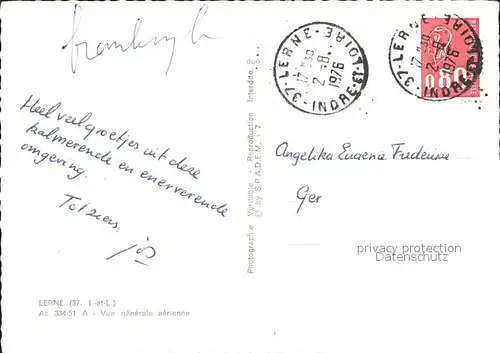 37-LERNE
INDRE-ET-LOIRE
17 H 30
2-8-
1976
37-LERNE
INDRE
LOIRE
17 H 30
2-8-
1976
0,80
Heel veel groetjes uit deze
kalmerende en enerverende
omgeving.
Tot ziens,
Jos
Angelika Eugenie Frederique
Ger
privacy protection
Datenschutz
Photographie Véritable - Reproduction Interdite
© by S.P.A.D.E.M. - 7
LERNE (37. I.-et-L.)
Ac 334-51 A - Vue générale aérienne